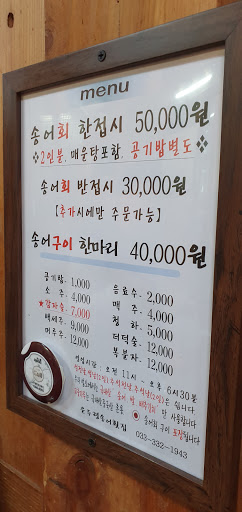 menu
송어회 한접시 50,000원
❖2인분, 매운탕포함, 공기밥별도❖
송어회 반접시 30,000원
【추가시에만 주문가능】
송어구이 한마리 40,000원
공기밥, 1,000
소 주, 4,000
★감자술, 7,000
백세주, 9,000
머루주, 12,000
음료수, 2,000
맥 주, 4,000
청 하, 5,000
더덕술, 12,000
복분자, 12,000
영업시간 : 오전 11시 ~ 오후 6시30분
송어회 구이 포장됩니다
033-332-1943